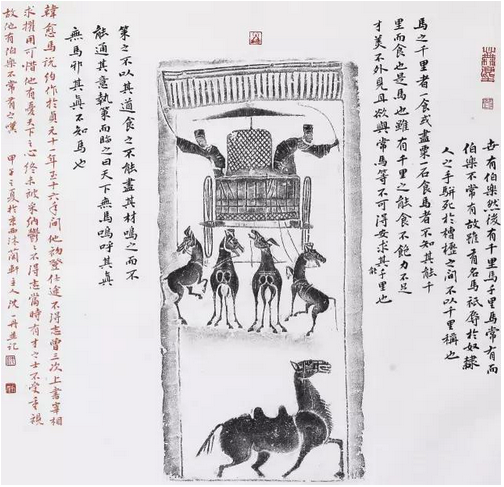 世有伯樂然後有千里馬千里馬常有而
伯樂不常有故雖有名馬祇辱於奴隸
人之手駢死於槽櫪之間不以千里稱也
馬之千里者一食或盡粟一石食馬者不知其能千
里而食也是馬也雖有千里之能食不飽力不足
才美不外見且欲與常馬等不可得安求其千里也
能
策之不以其道食之不能盡其材鳴之而不
能通其意執策而臨之曰天下無馬嗚呼其真
無馬邪其真不知馬也
韓愈馬說約作於貞元十一年至十六年間他初登仕途不得志曾三次上書宰相
求擢用可惜他有憂天下之心終未被采納鬱々不得志當時有才之士不受重視
故他有伯樂不常有之嘆 之夏於京西沐閑軒主人沈一丹並記